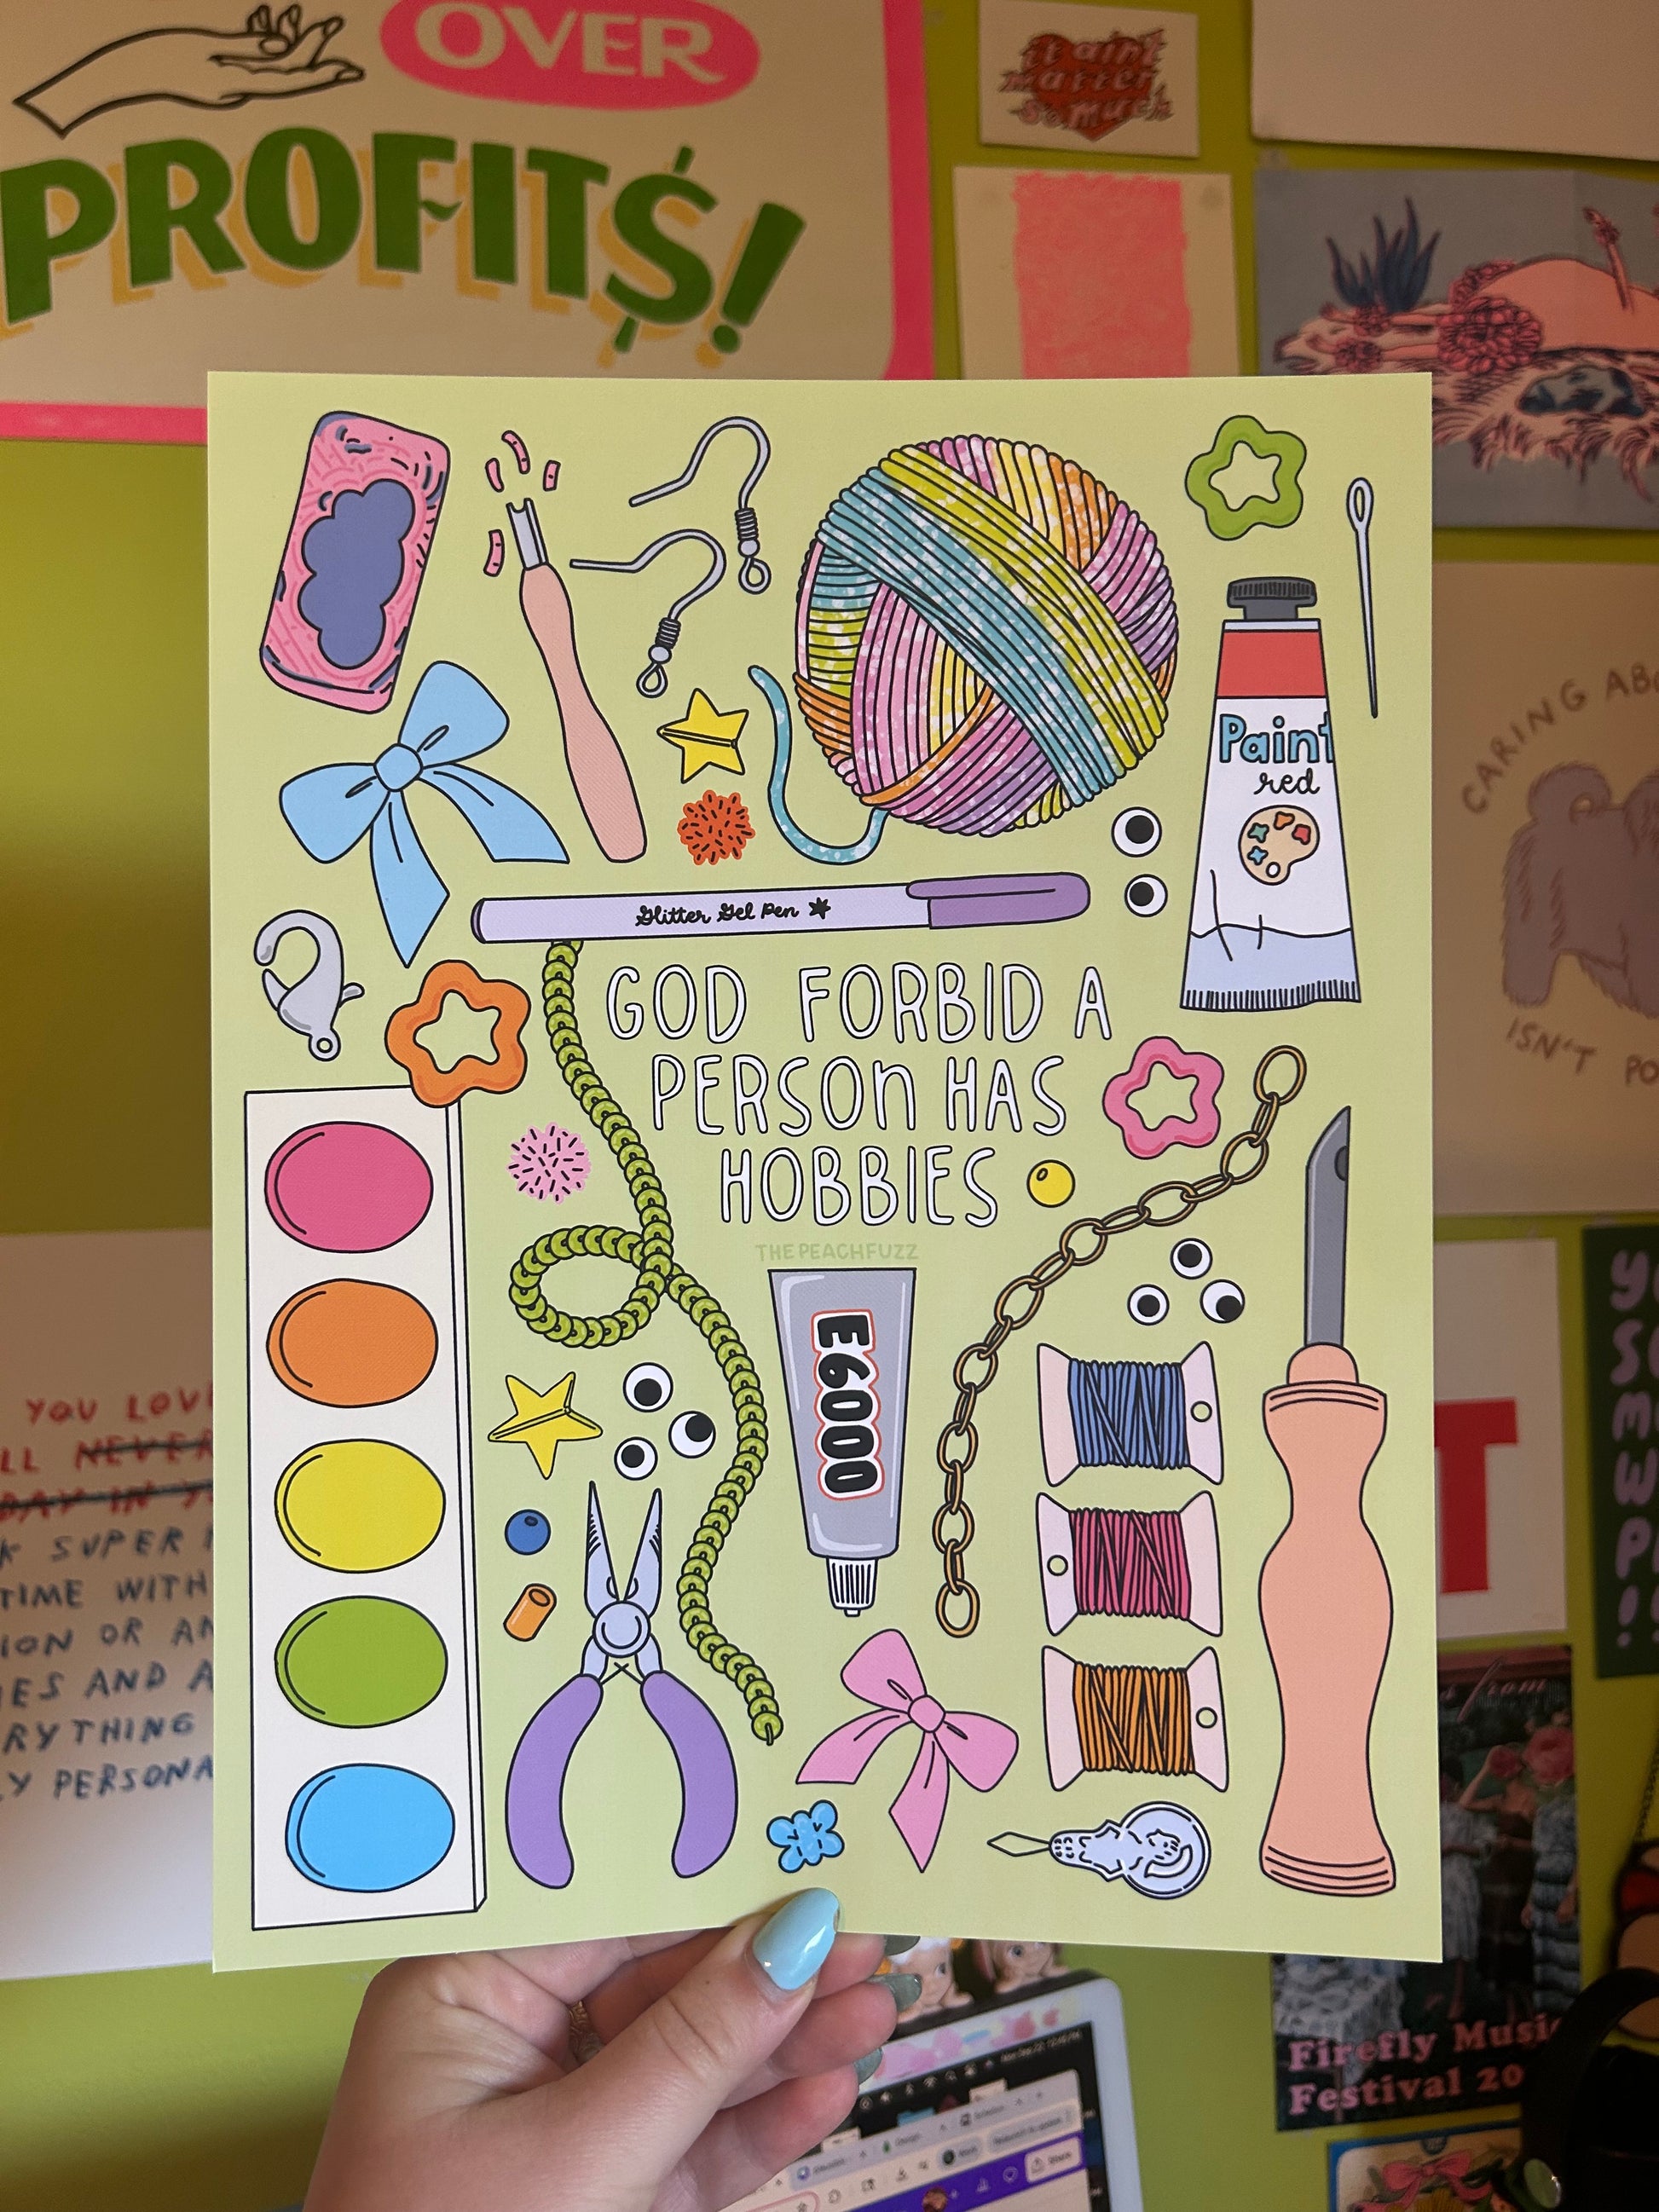 OVER
PROFIT$!
it ain't
matter
so much
Paint
red
Glitter Gel Pen
CARING ABO
ISN'T PO
GOD FORBID A
PERSON HAS
HOBBIES
THEPEACHFUZZ
E6000
YOU LOV
LL NEVER
DAY IN Y
K SUPER
TIME WITH
ION OR AN
IES AND A
RYTHING
LY PERSONA
T
Firefly Music
Festival 20